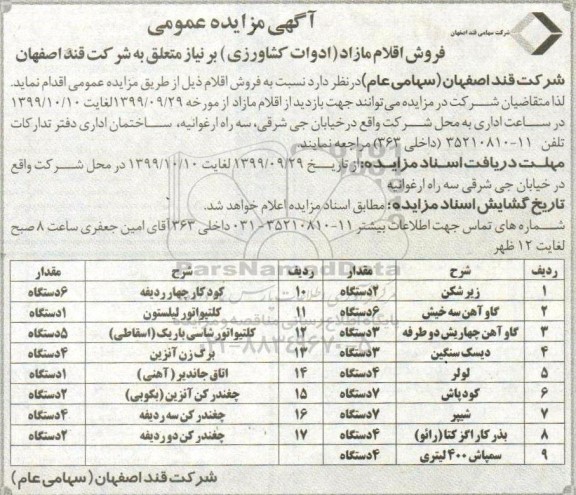 شرکت سهامی قند اصفهان
آگهی مزایده عمومی
فروش اقلام مازاد (ادوات کشاورزی) بر نیاز متعلق به شرکت قند اصفهان
شرکت قند اصفهان (سهامی عام) در نظر دارد نسبت به فروش اقلام ذیل از طریق مزایده عمومی اقدام نماید.
لذا متقاضیان شرکت در مزایده می توانند جهت بازدید از اقلام مازاد از مورخه ۱۳۹۹/۰۹/۲۹ لغایت ۱۳۹۹/۱۰/۱۰
در ساعت اداری به محل شرکت واقع در خیابان جی شرقی، سه راه ارغوانیه، ساختمان اداری دفتر تدارکات
تلفن ۱۱-۳۵۲۱۰۸۱۰ (داخلی ۳۶۳) مراجعه نمایند.
مهلت دریافت اسناد مزایده: از تاریخ ۱۳۹۹/۰۹/۲۹ لغایت ۱۳۹۹/۱۰/۱۰ در محل شرکت واقع
در خیابان جی شرقی سه راه ارغوانیه
تاریخ گشایش اسناد مزایده: مطابق اسناد مزایده اعلام خواهد شد.
شماره های تماس جهت اطلاعات بیشتر ۱۱-۳۵۲۱۰۸۱۰-۰۳۱ داخلی ۳۶۳ آقای امین جعفری ساعت ۸ صبح
لغایت ۱۲ ظهر
ردیف شرح مقدار ردیف شرح مقدار
۱ زیر شکن ۲دستگاه ۱۰ کود کار چهار ردیفه ۶دستگاه
۲ گاو آهن سه خیش ۶دستگاه ۱۱ کلتیواتور لیلستون ۱دستگاه
۳ گاو آهن چهاریش دو طرفه ۳دستگاه ۱۲ کلتیواتور شاسی باریک (اسقاطی) ۵دستگاه
۴ دیسک سنگین ۳دستگاه ۱۳ برگ زن آنزین ۴دستگاه
۵ لولر ۴دستگاه ۱۴ اتاق جاندیر (آهنی) ۱دستگاه
۶ کودپاش ۷دستگاه ۱۵ چغندر کن آنزین (بکوبی) ۲دستگاه
۷ شیپر ۷دستگاه ۱۶ چغندر کن سه ردیفه ۴دستگاه
۸ بذر کار اگز کتا (رائو) ۴دستگاه ۱۷ چغندر کن دو ردیفه ۲دستگاه
۹ سمپاش ۴۰۰ لیتری ۴دستگاه
شرکت قند اصفهان (سهامی عام)
ParsNamadData
۰۲۱-۸۸۳۴۹۶۷۰-۵